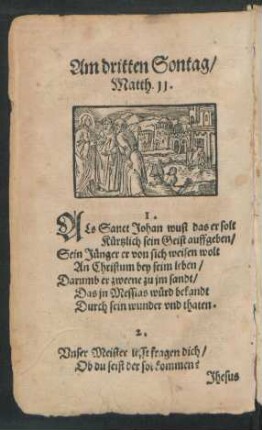 Am dritten Sontag/
Matth. 11.
1.
ALs Sanct Johan wust das er solt
Kürtzlich sein Geist auffgeben/
Sein Jünger er von sich weisen wolt
An Christum bey seim leben/
Darumb er zweene zu jm sandt/
Das jn Messias würd bekandt
Durch sein wunder vnd thaten.
2.
Vnser Meister lest fragen dich/
Ob du seist der sol kommen?
Jhesus